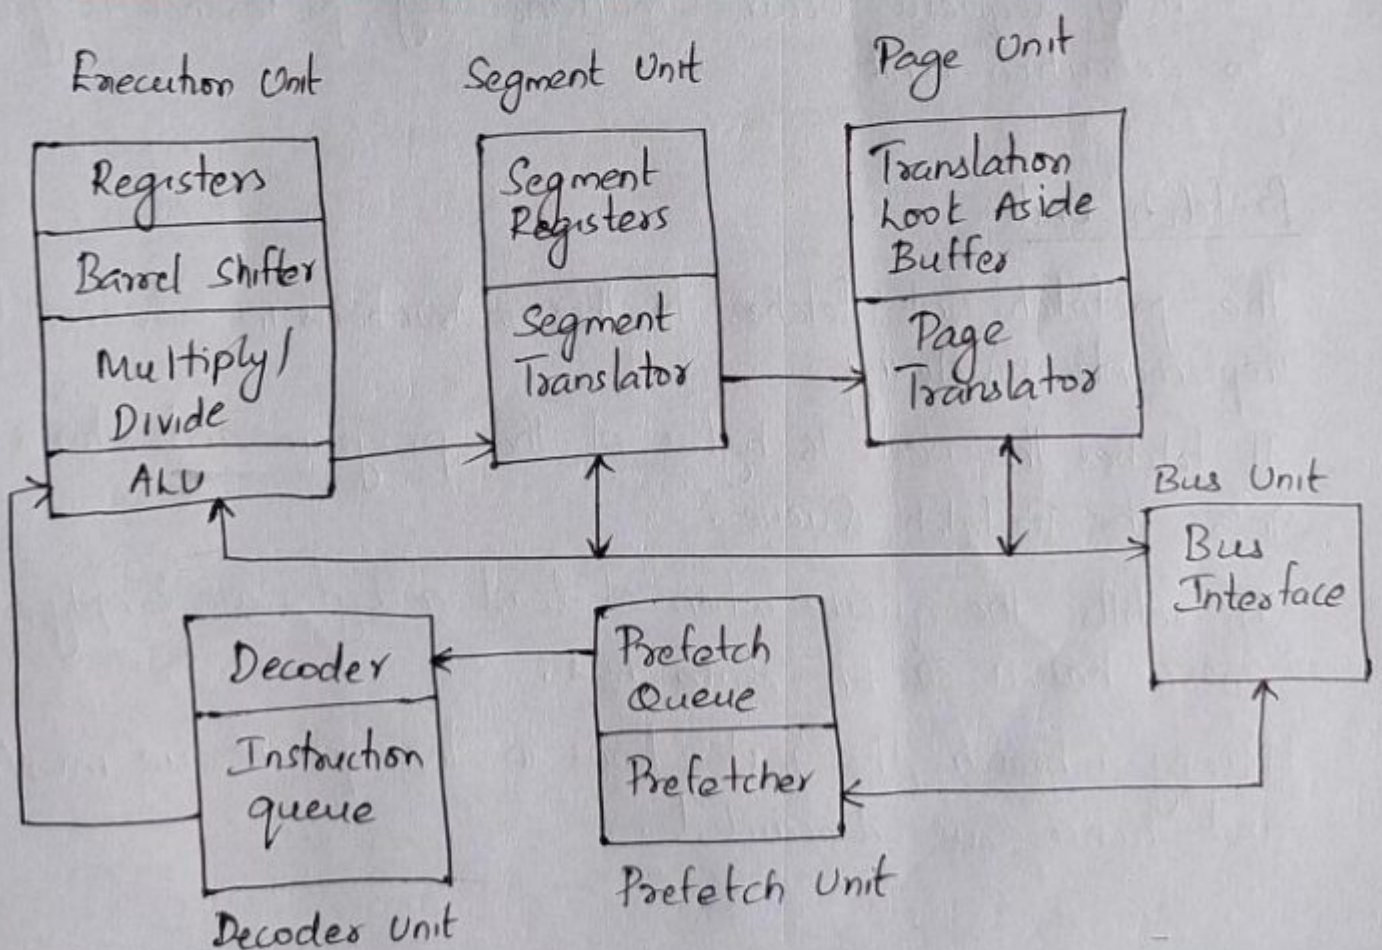 Execution Unit
Segment Unit
Page Unit
Registers
Barrel Shifter
Multiply/
Divide
ALU
Segment
Registers
Segment
Translator
Translation
Look Aside
Buffer
Page
Translator
Bus Unit
Bus
Interface
Decoder
Instruction
queue
Decoder Unit
Prefetch
Queue
Prefetcher
Prefetch Unit